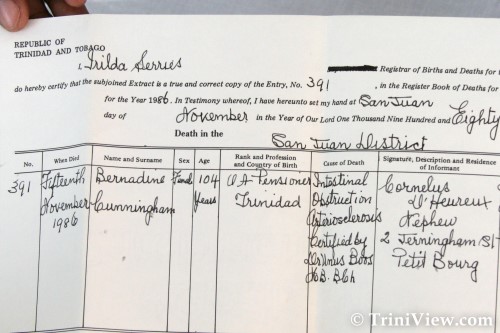 REPUBLIC OF
TRINIDAD AND TOBAGO
I, Trilda Serries Registrar of Births and Deaths for
do hereby certify that the subjoined Extract is a true and correct copy of the Entry, No. 391 , in the Register Book of Deaths for
for the Year 1986. In Testimony whereof, I have hereunto set my hand at San Juan
day of November in the Year of Our Lord One Thousand Nine Hundred and Eighty
Death in the San Juan District
No. When Died Name and Surname Sex Age Rank and Profession and Country of Birth Cause of Death Signature, Description and Residence of Informant
391 Fifteenth November 1986
Bernadine Cunningham
104 Years
O A Pensioner
Trinidad
Intestinal
Obstruction
Arteriosclerosis
Certified by
Boos
Cornelus
D'Heureux
Nephew
2 Jermingham St
Petit Bourg
© TriniView.com